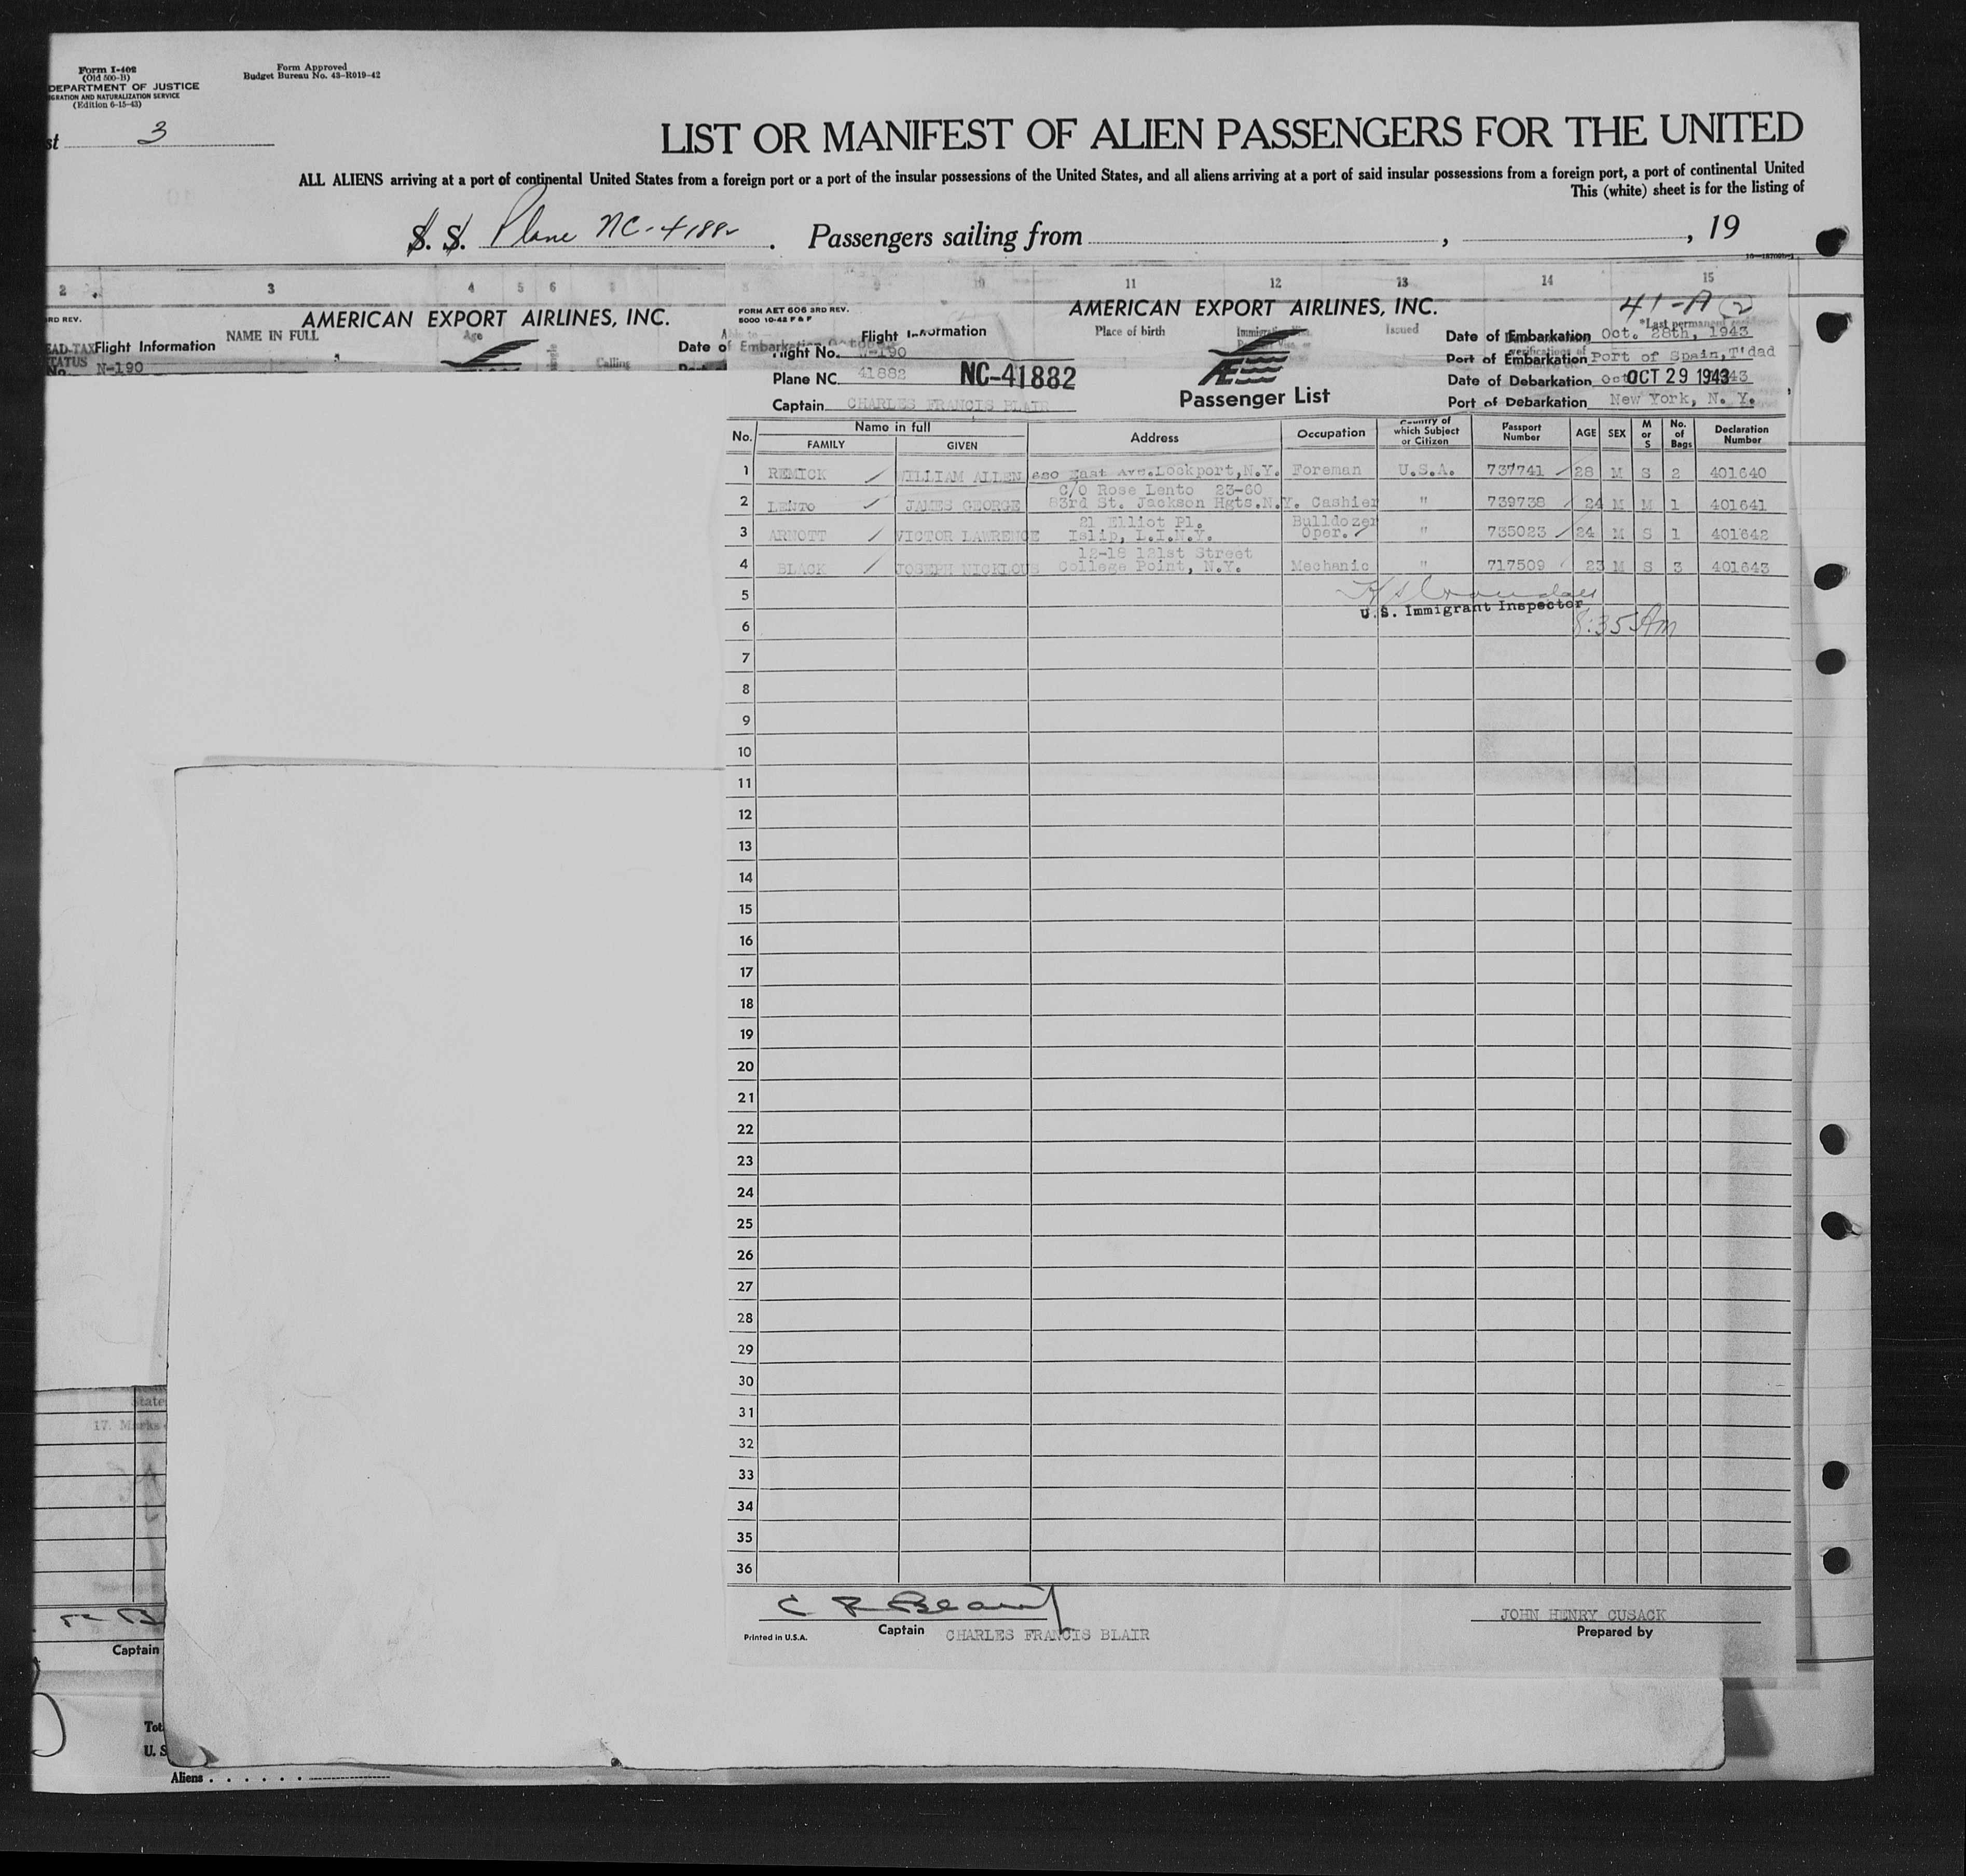 Form I-402
(Old 500-B)
DEPARTMENT OF JUSTICE
IGRATION AND NATURALIZATION SERVICE
(Edition 6-15-43)
Form Approved
Budget Bureau No. 43-R019-42
st 3
LIST OR MANIFEST OF ALIEN PASSENGERS FOR THE UNITED
ALL ALIENS arriving at a port of continental United States from a foreign port or a port of the insular possessions of the United States, and all aliens arriving at a port of said insular possessions from a foreign port, a port of continental United
This (white) sheet is for the listing of
S. S. Plane NC-41882 . Passengers sailing from , , 19
2 3 4 5 6 8 9 10 11 12 13 14 15
RD REV.
NAME IN FULL
AMERICAN EXPORT AIRLINES, INC.
Age
Calling
EAD-TAX
STATUS
Flight Information
No. N-190
Date of Embarkation
FORM AET 606 3RD REV.
5000 10-42 P & P
AMERICAN EXPORT AIRLINES, INC.
41-A (2)
Place of birth
Issued
*Last permanent
Flight Information
Flight No. N-190
Plane NC. 41882 NC-41882
Captain CHARLES FRANCIS BLAIR
Passenger List
Date of Embarkation Oct. 28th, 1943
Port of Embarkation Port of Spain, T'dad
Date of Debarkation OCT 29 1943
Port of Debarkation New York, N. Y.
No. Name in full Address Occupation Country of which Subject or Citizen Passport Number AGE SEX M or S No. of Bags Declaration Number
FAMILY GIVEN
1 REMICK WILLIAM ALLEN East Ave. Lockport, N.Y. Foreman U.S.A. 737741 28 M S 2 401640
c/o Rose Lento 23-60
2 LENTO JAMES GEORGE 83rd St. Jackson Hgts. N.Y. Cashier " 739738 24 M M 1 401641
21 Elliot Pl. Bulldozer
3 ARNOTT VICTOR LAWRENCE Islip, L.I.N.Y. Oper. " 735023 24 M S 1 401642
12-18 121st Street
4 BLACK JOSEPH NICKLOUS College Point, N.Y. Mechanic " 717509 23 M S 3 401643
5
U.S. Immigrant Inspector
6 8:35 AM
7
8
9
10
11
12
13
14
15
16
17
18
19
20
21
22
23
24
25
26
27
28
29
30
31
32
33
34
35
36
C F Blair
Captain CHARLES FRANCIS BLAIR
Printed in U.S.A.
JOHN HENRY CUSACK
Prepared by
State
17. Marks
Captain
Tot
U. S
Aliens